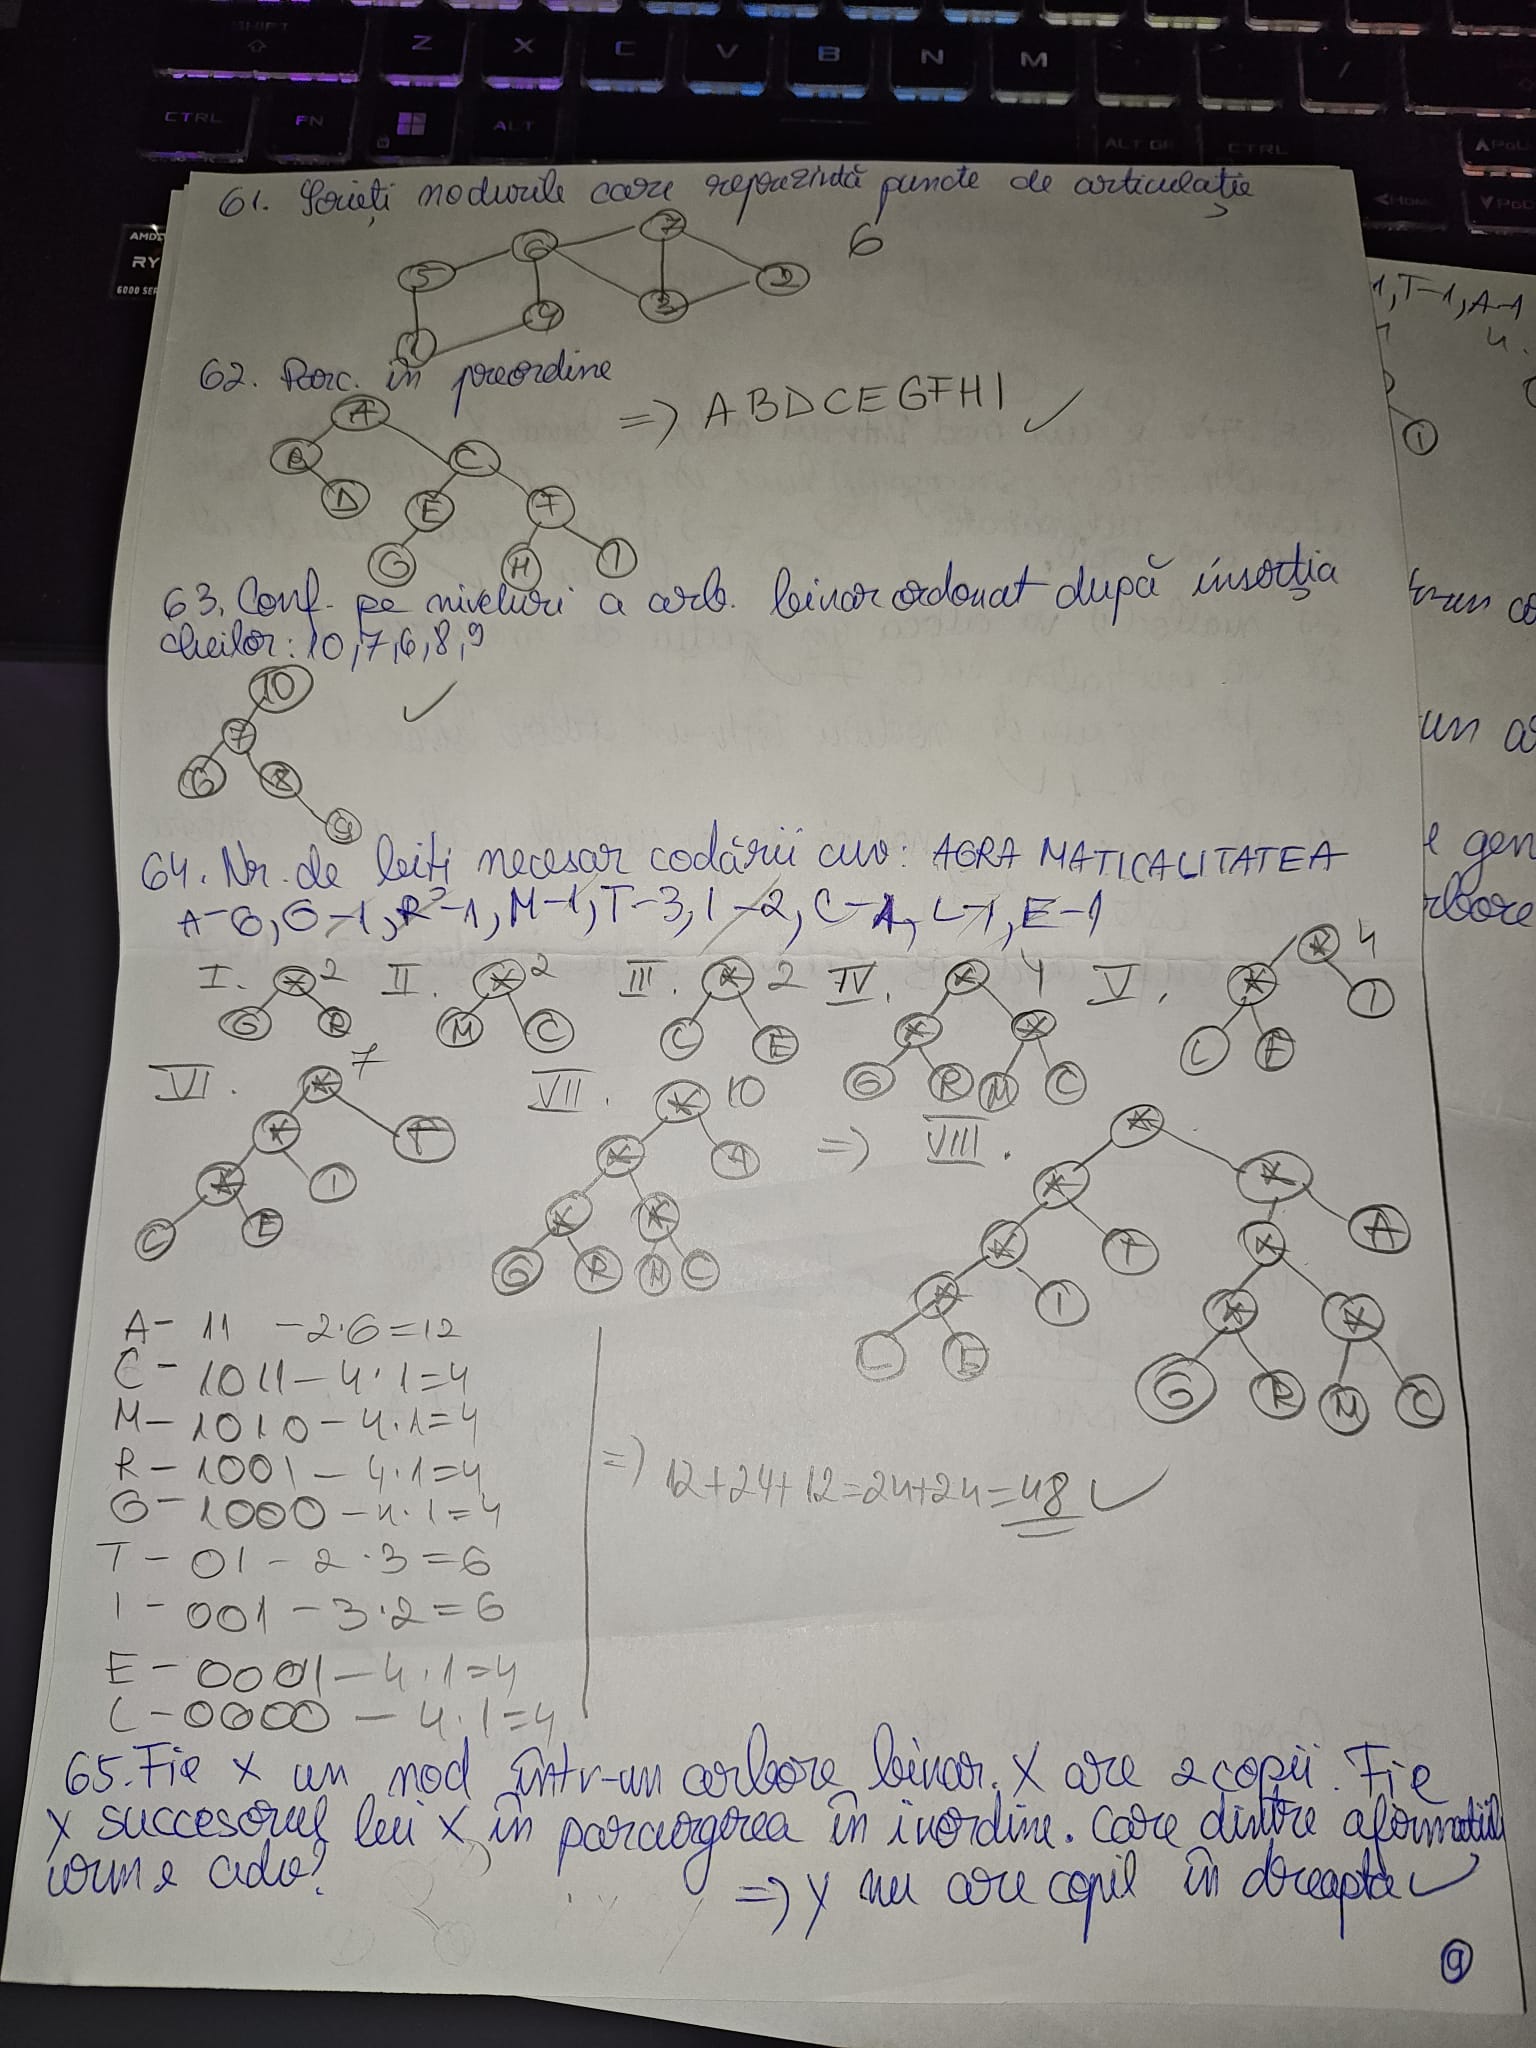 SHIFT
Z X C V B N M < > /
CTRL FN ALT ALT GR CTRL
AMD
RY
6000 SER
<HOME
61. Scrieți nodurile care reprezintă puncte de articulație
6
5 6 7 2 3 4 1
62. Parc. în preordine
=> ABDCEGFHI ✓
A
B C
D E F
G H I
63. Conf. pe niveluri a arb. binar ordonat după inserția
cheilor: 10,7,6,8,9
10
7 ✓
6 8
9
64. Nr. de biți necesar codării cuv: AGRA MATICALITATEA
A-6, G-1, R-1, M-1, T-3, I-2, C-1, L-1, E-1
I. * 2 II. * 2 III. * 2 IV. * 4 V. * 4
G R M C C E * * * I
G R M C L E
VI. * 7 VII. * 10 => VIII. *
* T * A * *
* I * * * T * A
C E G R M C * I * *
L E G R M C
A - 11 - 2·6=12
C - 1011 - 4·1=4
M - 1010 - 4·1=4
R - 1001 - 4·1=4
G - 1000 - 4·1=4
T - 01 - 2·3=6
I - 001 - 3·2=6
E - 0001 - 4·1=4
L - 0000 - 4·1=4
=> 12+24+12=24+24=48 ✓
65. Fie X un nod într-un arbore binar. X are 2 copii. Fie
Y succesorul lui X în parcurgerea în inordine. Care dintre afirmatiile
urm e adev?
=> Y nu are copil în dreapta ✓
9
1, T-1, A-1
4.
1
un
e gen
rbore